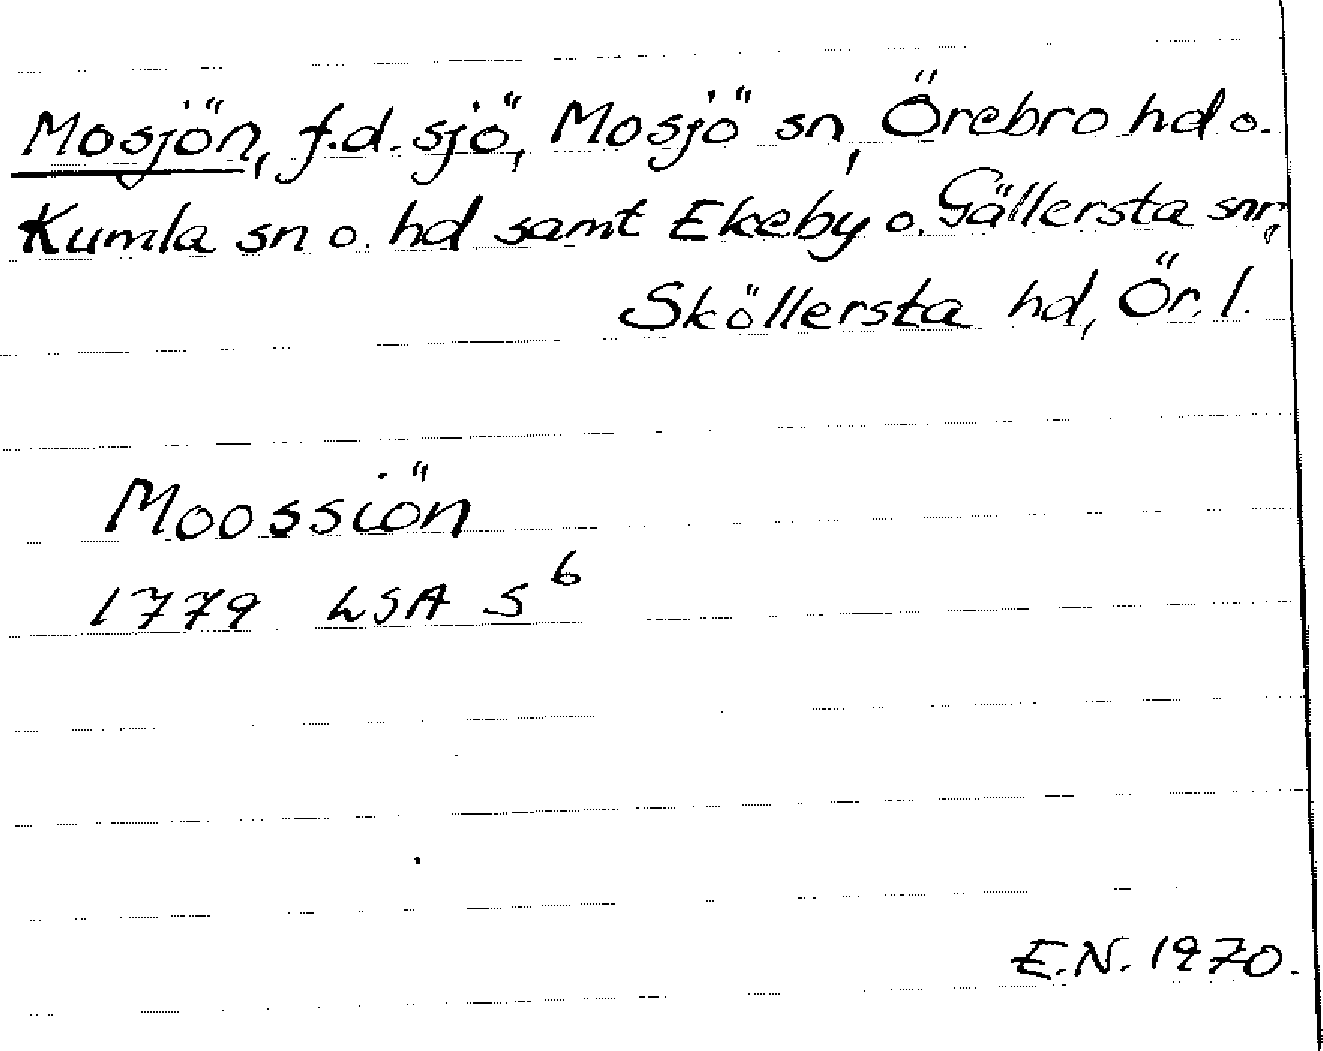 Mosjön, f.d. sjö, Mosjö sn, Örebro hd o.
Kumla sn o. hd samt Ekeby o. Gällersta snr,
Sköllersta hd, Ör. l.
Moossiön
1779 LSA S⁶
E.N. 1970.